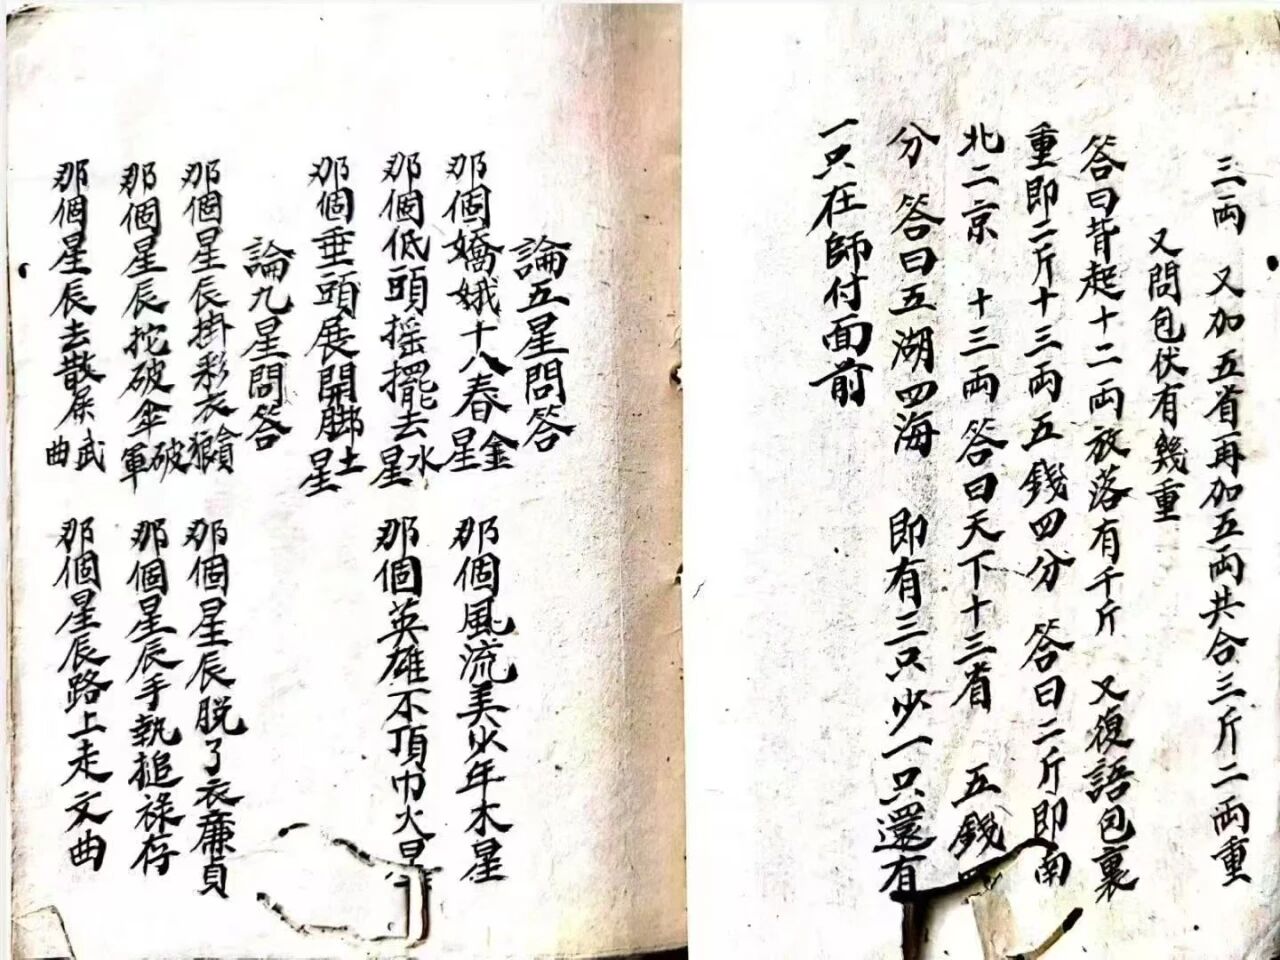 三両 又加五省再加五両共合三斤二両重
又問包伏有幾重
答曰背起十二両放落有千斤 又復語包裏
重即二斤十三両五錢四分 答曰二斤即南
北二京 十三両答曰天下十三省 五錢四
分 答曰五湖四海 即有三只少一只還有
一只在師付面前
論五星問答
那個嬌娥十八春金星 那個風流美少年木星
那個低頭搖擺去水星 那個英雄不頂巾火星
那個垂頭展開脚土星
論九星問答
那個星辰掛彩衣貪狼 那個星辰脱了衣廉貞
那個星辰挖破傘破軍 那個星辰手執搥祿存
那個星辰去散席武曲 那個星辰路上走文曲